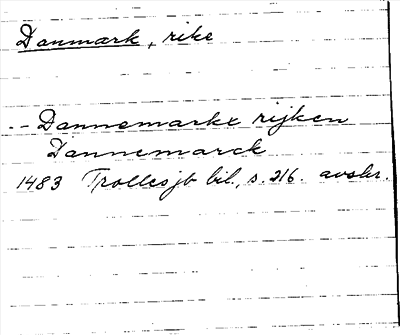 Danmark, rike
-- Dannemarke rijken
Dannemarck
1483 Trollesjb bil., s. 216. avskr.